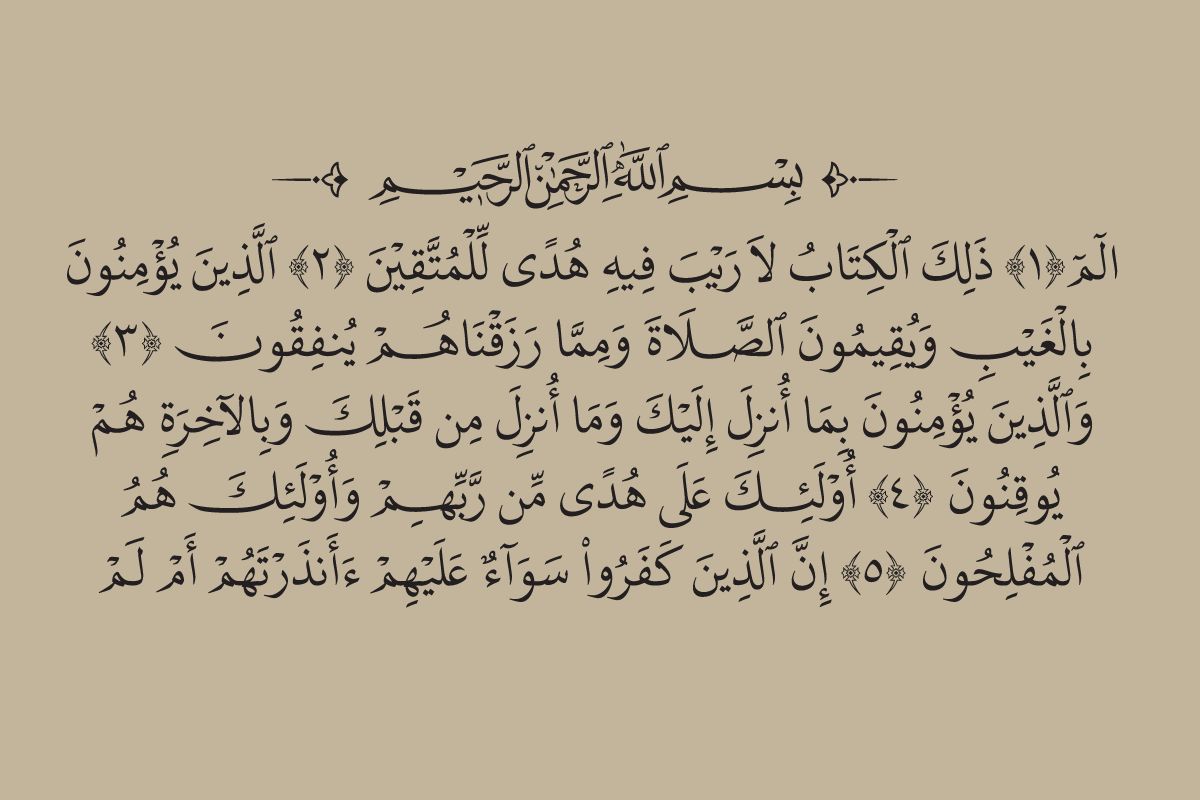 بِسْمِ ٱللَّهِ ٱلرَّحْمَٰنِ ٱلرَّحِيمِ
الٓمٓ ﴿١﴾ ذَٰلِكَ ٱلْكِتَابُ لاَ رَيْبَ فِيهِ هُدًى لِّلْمُتَّقِيْنَ ﴿٢﴾ ٱلَّذِينَ يُؤْمِنُونَ
بِالْغَيْبِ وَيُقِيمُونَ ٱلصَّلَاةَ وَمِمَّا رَزَقْنَاهُمْ يُنفِقُونَ ﴿٣﴾
وَٱلَّذِينَ يُؤْمِنُونَ بِمَا أُنزِلَ إِلَيْكَ وَمَا أُنزِلَ مِن قَبْلِكَ وَبِالآخِرَةِ هُمْ
يُوقِنُونَ ﴿٤﴾ أُوْلَئِكَ عَلَى هُدًى مِّن رَّبِّهِمْ وَأُوْلَئِكَ هُمُ
ٱلْمُفْلِحُونَ ﴿٥﴾ إِنَّ ٱلَّذِينَ كَفَرُواْ سَوَآءٌ عَلَيْهِمْ ءَأَنذَرْتَهُمْ أَمْ لَمْ